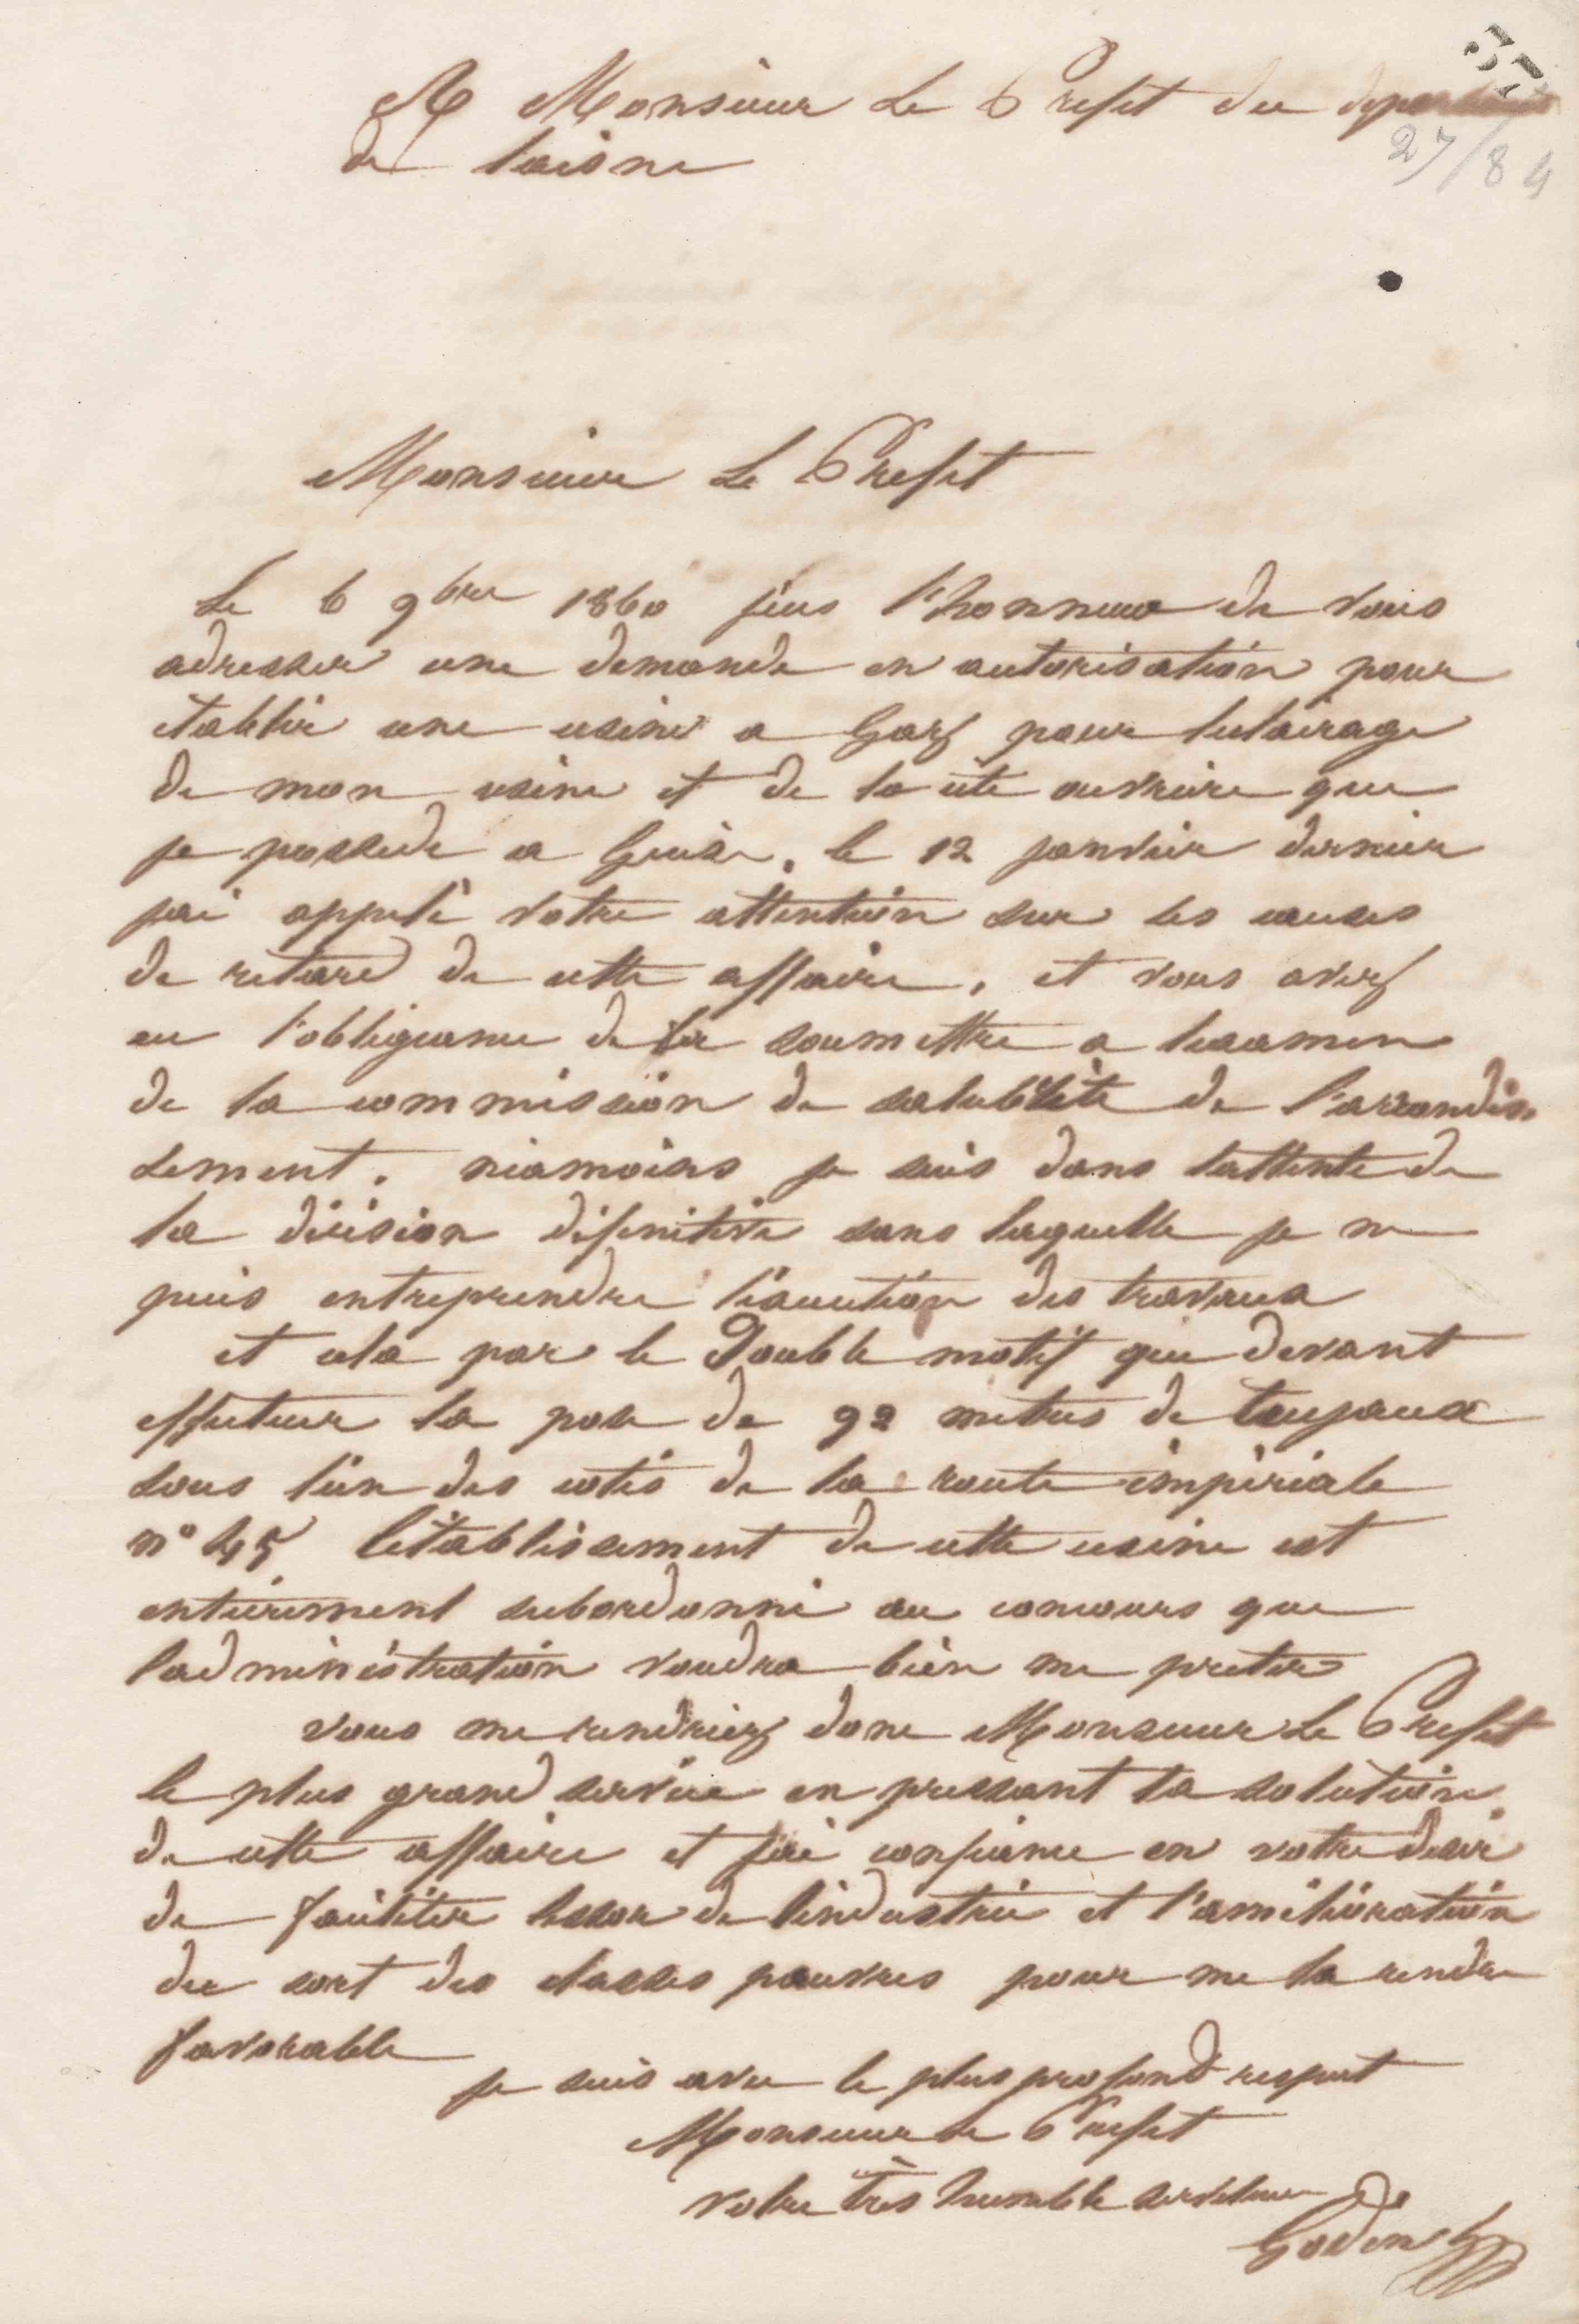 A Monsieur Le Prefet du departement
de laisne
27/84
Monsieur Le Prefet
Le 6 9bre 1860 jeus l'honneur de vous
adresser une demande en autorisation pour
établir une usine a Gaz pour leclairage
de mon usine et de la cité ouvrière que
je possede a Guise, le 12 janvier dernier
jai appelé votre attention sur les causes
de retard de cette affaire, et vous avez
eu l'obligeance de la soumettre a lexamen
de la commission de salubrité de l'arrondis
sement. néamoins je suis dans lattente de
la décision définitive sans laquelle je ne
puis entreprendre l'éxecution des travaux
et cela par le Double motif que devant
effectuer la pose de 92 metres de tuyaux
sous l'un des cotés de la route impériale
n° 45 l'établissement de cette usine est
entièrement subordonné au concours que
ladministration voudra bien me preter
vous me rendriez donc Monsieur Le Prefet
le plus grand service en pressant la solution
de cette affaire et j'ai confiance en votre desir
de faciliter lessor de lindustrie et l'amélioration
du sort des classes pauvres pour me la rendre
favorable
je suis avec le plus profond respect
Monsieur le Prefet
votre très humble serviteur
Godin